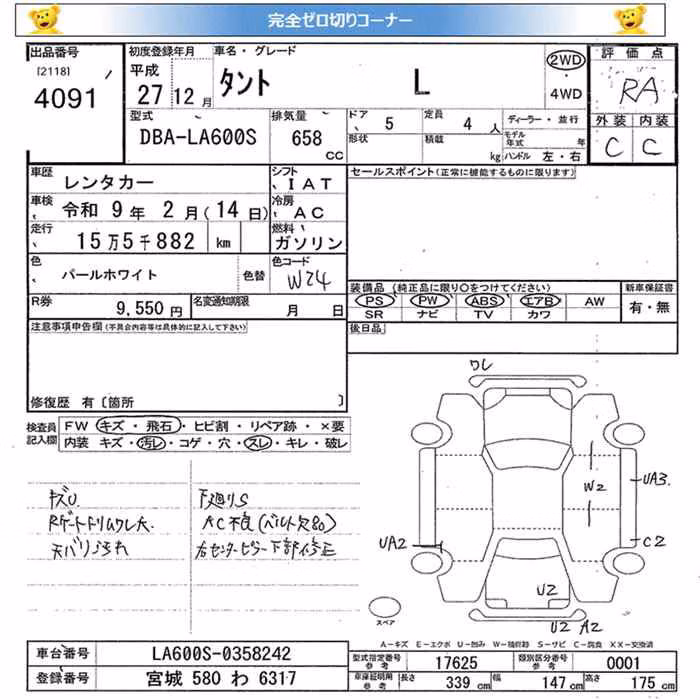 完全ゼロ切りコーナー
出品番号
[2118]
4091
初度登録年月
平成
27 12 月
車名・グレード
タント L
2WD
・
4WD
評価点
RA
外装 内装
C C
型式
DBA-LA600S
排気量
658
CC
ドア
、 5
形状
定員
4 人
積載
kg
ディーラー・並行
モデル
年式 年
ハンドル 左・右
車歴
レンタカー
シフト
、 IAT
車検
、 令和 9 年 2 月(14 日)
冷房
、 AC
走行
、 15 万 5 千 882 km
燃料
ガソリン
色
、 パールホワイト 色替
色コード
W24
R券
9,550 円
名変通知期限
月 日
セールスポイント(正常に機能するものに限ります)
装備品 (純正品に限り○をつけてください)
PS PW ABS エアB AW
SR ナビ TV カワ
新車保証書
有・無
注意事項申告欄(不具合内容等は具体的に記入して下さい)
後日品
修復歴 有〔箇所 〕
検査員
記入欄
FW キズ・飛石・ヒビ割・リペア跡・×要
内装 キズ・汚レ・コゲ・穴・スレ・キレ・破レ
キズU
Rゲートトリムワレ大
天バリ汚れ
下廻りS
AC不良(ベルト欠品)
右センターピラー下部修正
ワレ
W2
UA3
UA2
C2
U2
U2 A2
スペア
A－キズ E－エクボ U－凹み W－補修跡 S－サビ C－腐食 XX－交換済
車台番号
LA600S-0358242
登録番号
宮城 580 わ 6317
型式指定番号
参考
17625
類別区分番号
参考
0001
車庫証明用
参考
長さ
339 cm
幅
147 cm
高さ
175 cm